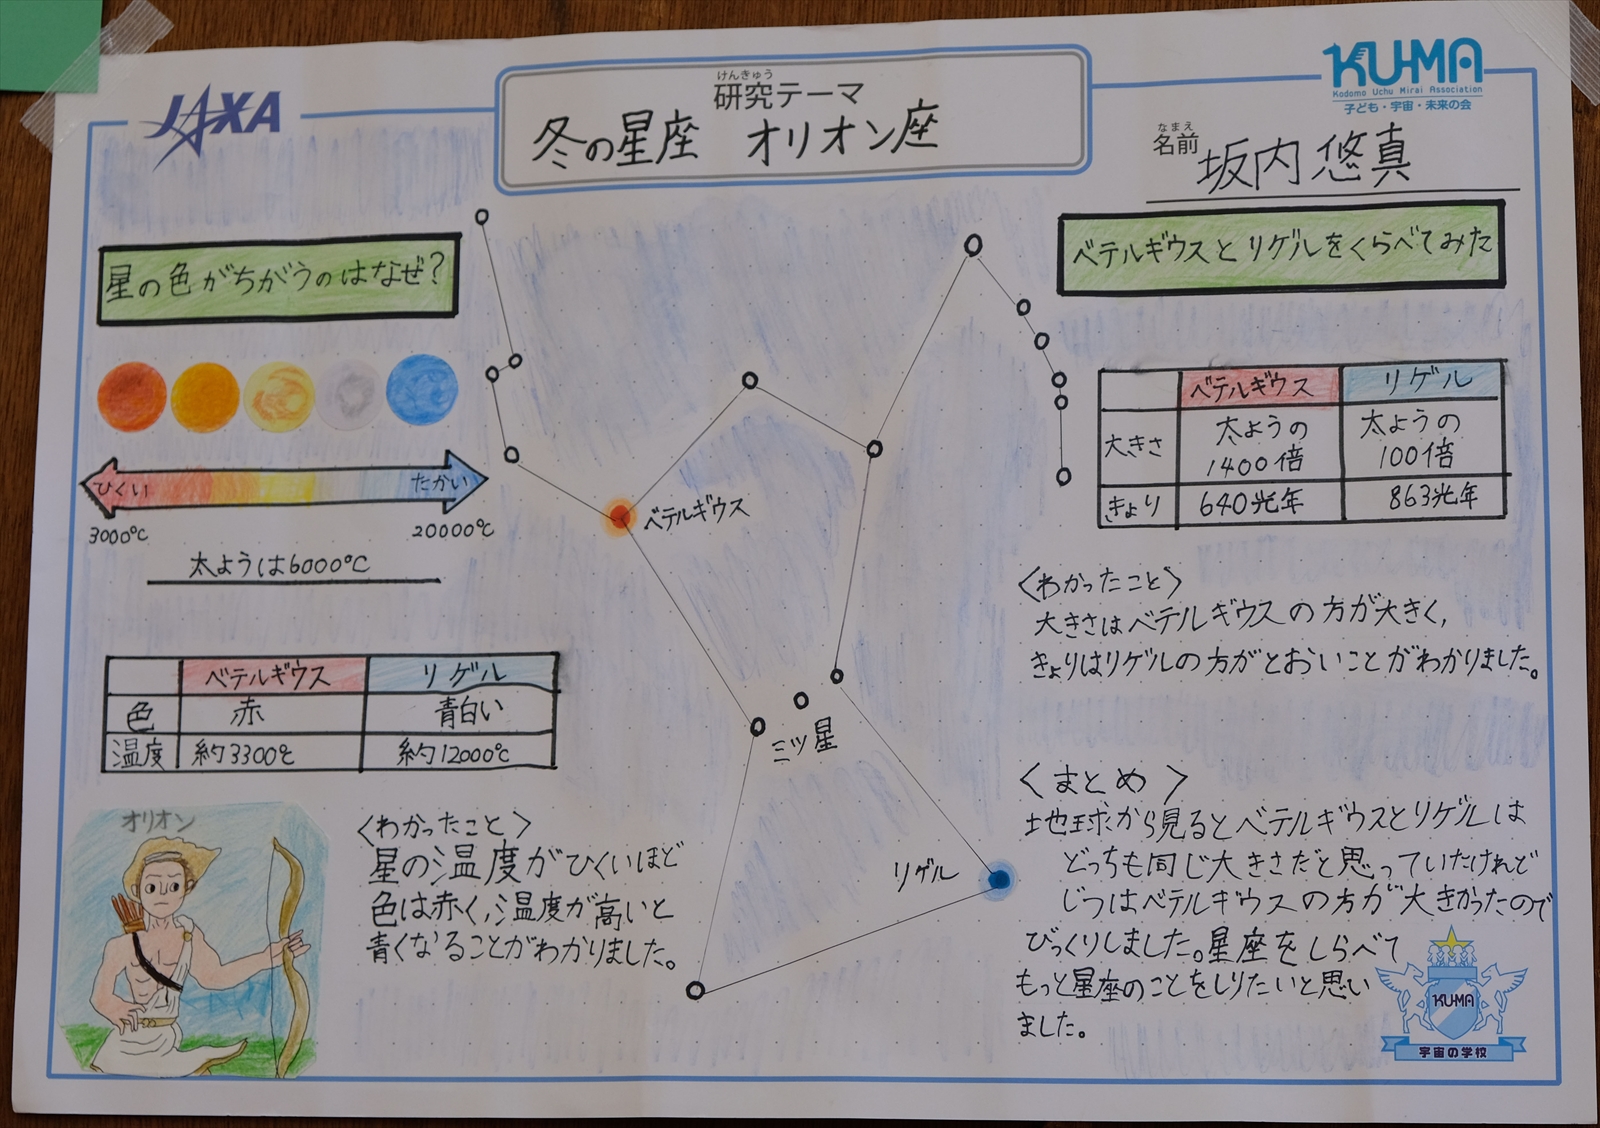 JAXA
けんきゅう
研究テーマ
冬の星座 オリオン座
KU-MA
Kodomo Uchu Mirai Association
子ども・宇宙・未来の会
なまえ
名前
坂内悠真
星の色がちがうのはなぜ?
ひくい たかい
3000℃ 20000℃
太ようは6000℃
ベテルギウス リゲル
色 赤 青白い
温度 約3300℃ 約12000℃
オリオン
〈わかったこと〉
星の温度がひくいほど
色は赤く、温度が高いと
青くなることがわかりました。
ベテルギウス
三ツ星
リゲル
ベテルギウスとリゲルをくらべてみた
ベテルギウス リゲル
大きさ 太ようの1400倍 太ようの100倍
きょり 640光年 863光年
〈わかったこと〉
大きさはベテルギウスの方が大きく,
きょりはリゲルの方がとおいことがわかりました。
〈まとめ〉
地球から見るとベテルギウスとリゲルは
どっちも同じ大きさだと思っていたけれど
じつはベテルギウスの方が大きかったので
びっくりしました。星座をしらべて
もっと星座のことをしりたいと思い
ました。
KU-MA
宇宙の学校